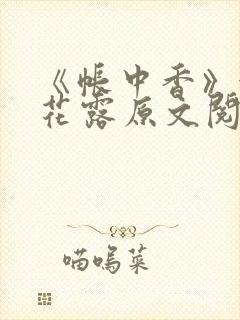 《帐中香》
花露原文阅
喵呜菜